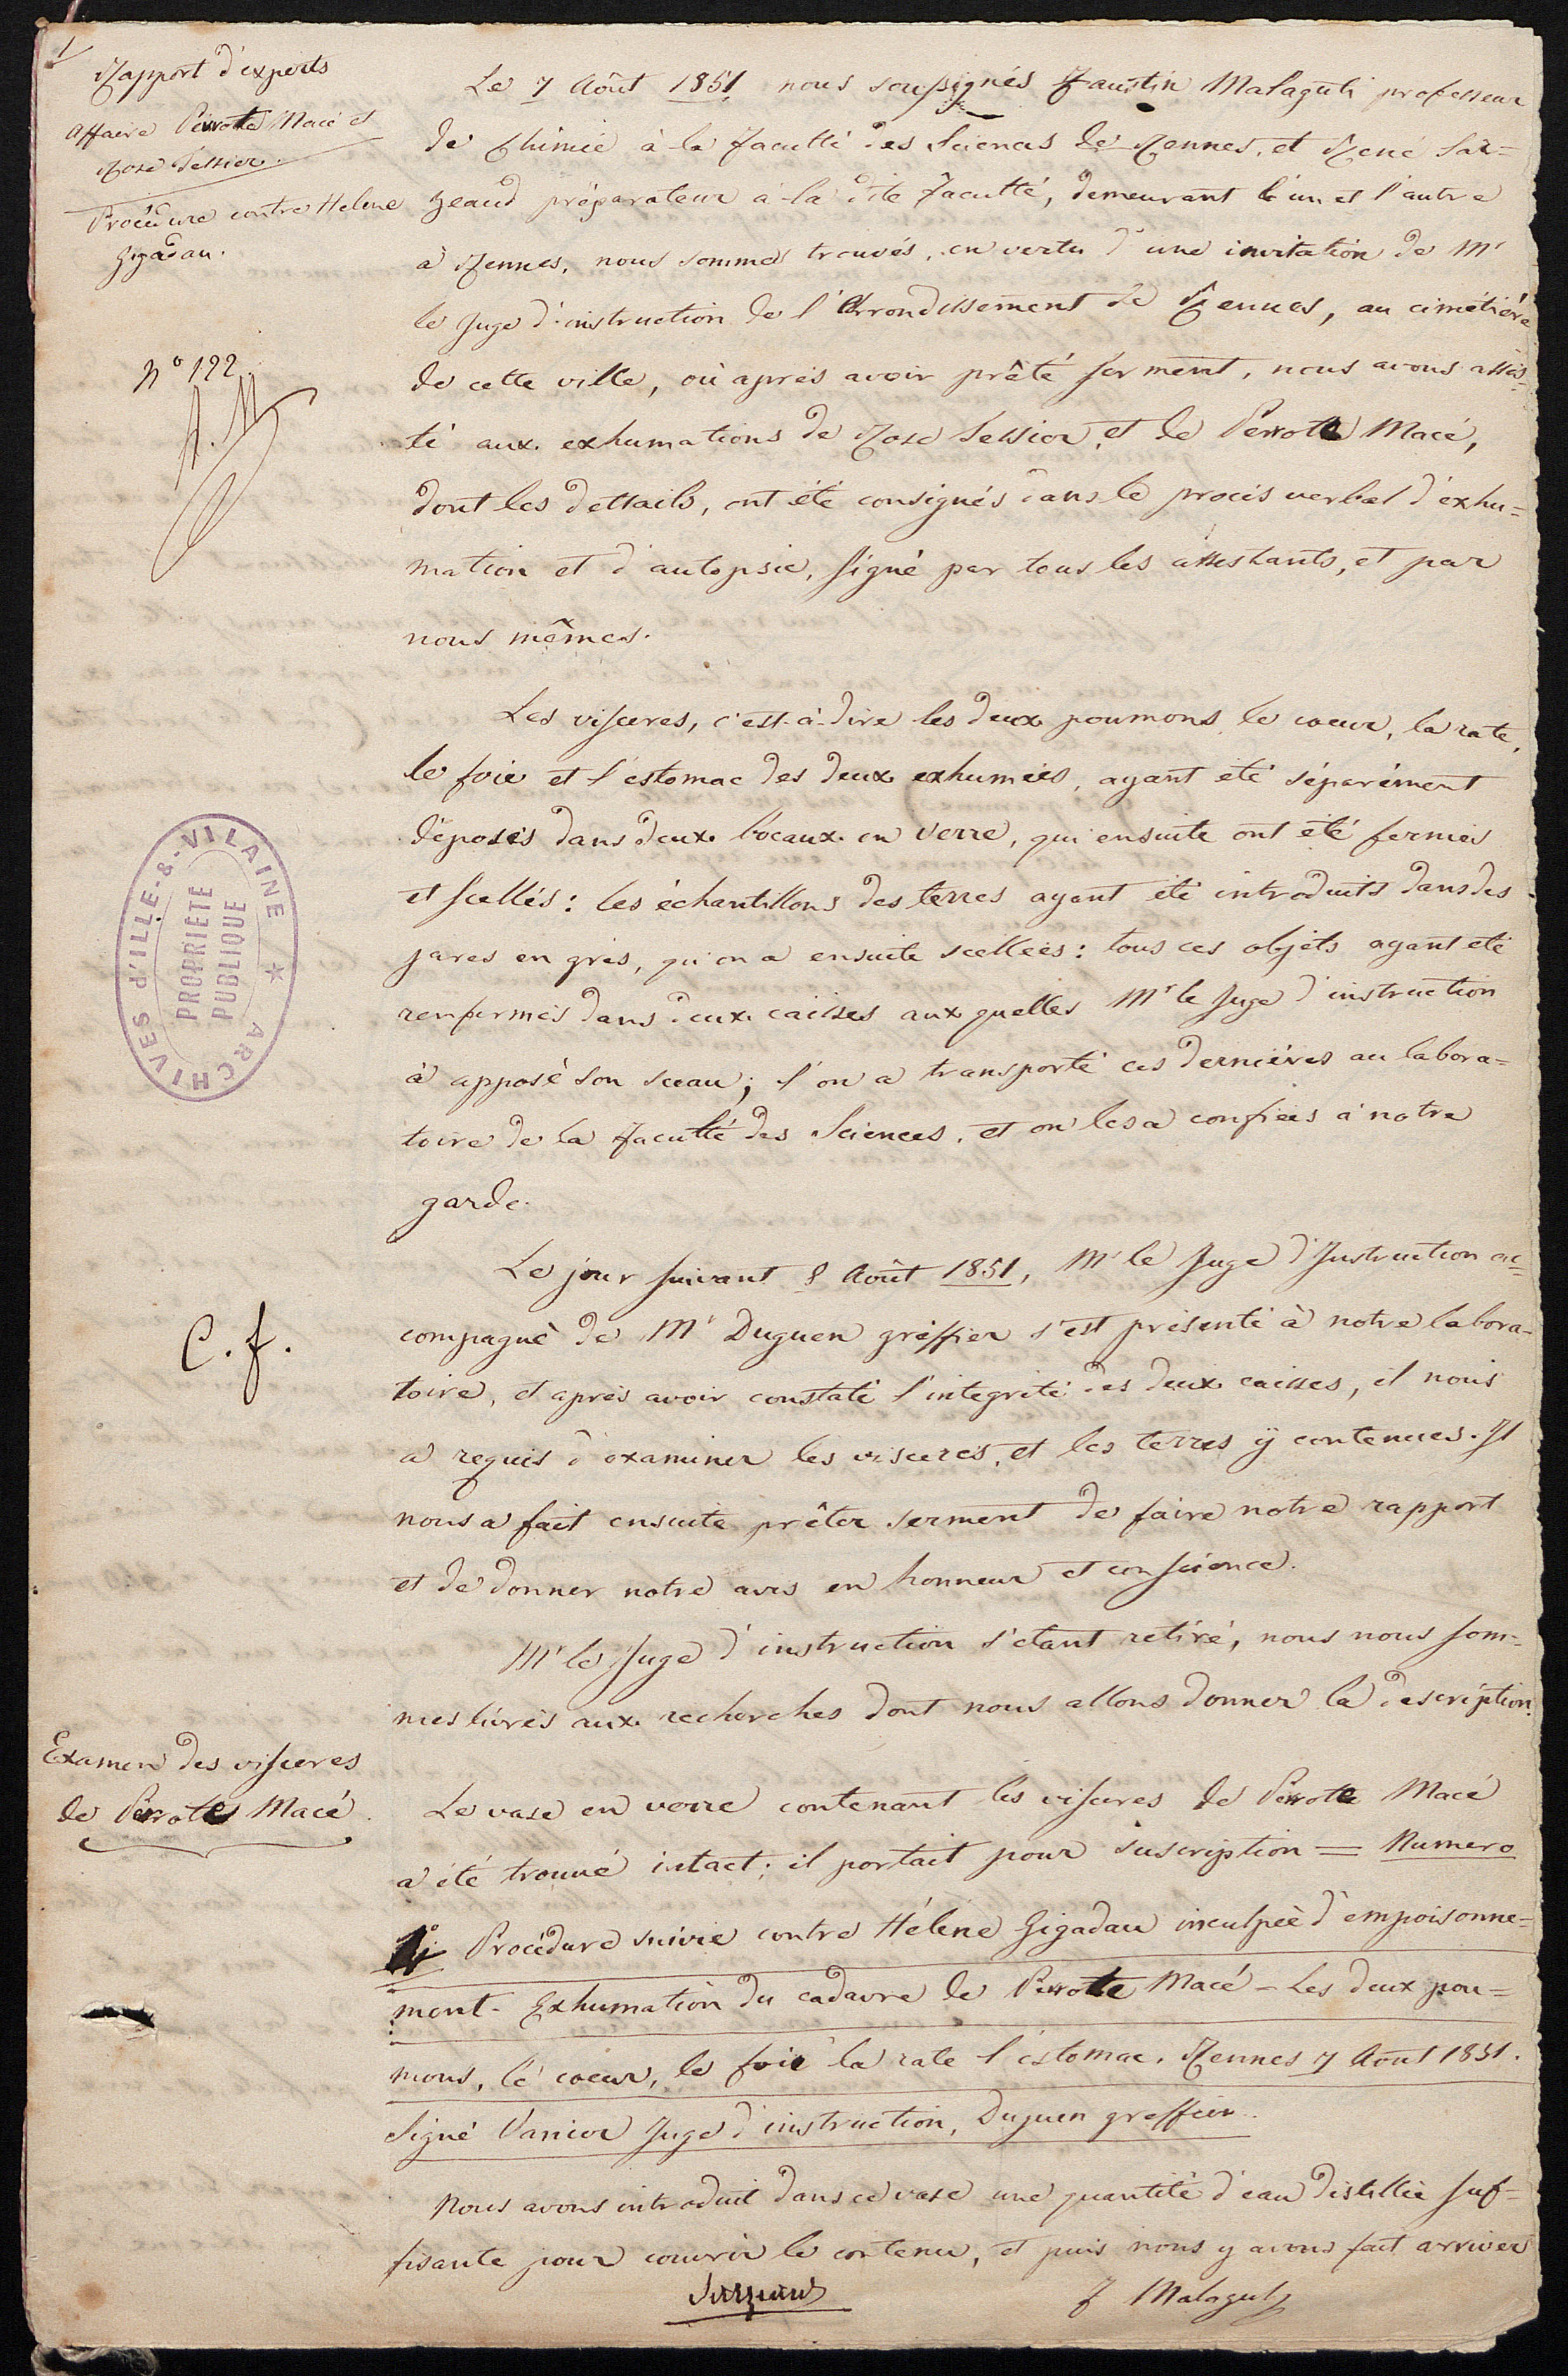 1/
Rapport d'experts
Affaire Perrotte Macé et
Rose Tessier.
Procédure contre Helene
Gigadau.
N° 122.
C. f.
ARCHIVES d'ILLE-&-VILAINE
PROPRIÉTÉ
PUBLIQUE
Le 7 Août 1851, nous soussignés Faustin Malaguti professeur
de Chimie à la Faculté des Sciences de Rennes, et René Sar=
zeaud préparateur à la dite Faculté, demeurant l'un et l'autre
à Rennes, nous sommes trouvés, en vertu d'une invitation de Mr
le Juge d'instruction de l'Arrondissement de Rennes, au cimétière
de cette ville, où après avoir prêté serment, nous avons assis=
té aux exhumations de Rose Tessier, et de Perrotte Macé,
dont les dettails, ont été consignés dans le procès verbal d'exhu=
mation et d'autopsie, signé par tous les assistants, et par
nous mêmes.
Les visceres, c'est-à-dire les deux poumons, le coeur, la rate,
le foie et l'estomac des deux exhumées, ayant été séparément
déposés dans deux bocaux en verre, qui ensuite ont été fermés
et scellés: les échantillons des terres ayant été introduits dans des
jares en grès, qu'on a ensuite scellées: tous ces objets ayant été
renfermés dans deux caisses aux quelles Mr le Juge d'instruction
à apposé son sceau; l'on a transporté ces dernières au labora=
toire de la Faculté des Sciences, et on les a confiées à notre
garde.
Le jour suivant 8 Août 1851, Mr le Juge d'Instruction ac=
compagné de Mr Duguen gréffier s'est présenté à notre labora-
toire, et après avoir constaté l'integrité des deux caisses, il nous
a requis d'examiner les visceres, et les terres ÿ contenues. Il
nous a fait ensuite prêter serment de faire notre rapport
et de donner notre avis en honneur et conscience.
Mr le Juge d'instruction s'étant retiré, nous nous som-
mes livrés aux recherches dont nous allons donner la description.
Examen des visceres
de Perrotte Macé.
Le vase en verre contenant les visceres de Perrotte Macé
a été trouvé intact; il portait pour suscription = Numero
1° Procédure suivie contre Hélène Gigadau inculpée d'empoisonne=
ment - Exhumation du cadavre de Perrotte Macé - Les deux pou=
mons, le coeur, le foie la rate l'estomac. Rennes 7 Août 1851.
Signé Vanier Juge d'instruction, Duguen greffier.
Nous avons introduit dans ce vase une quantité d'eau distillée suf=
fisante pour couvrir le contenu, et puis nous y avons fait arriver
Sarzeaud
F Malaguti